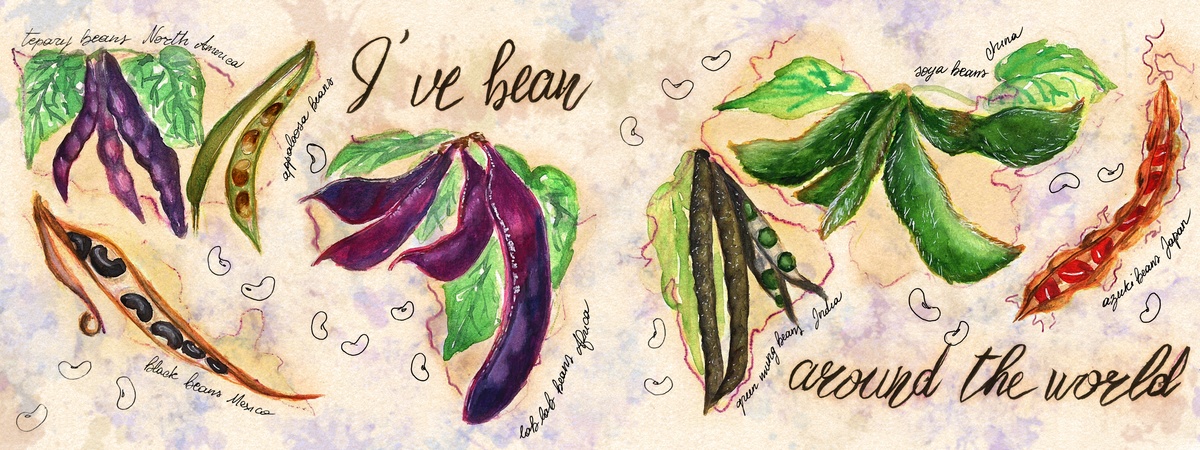 tepary beans North America
appaloosa beans
I've bean
black beans Mexico
lab lab beans Africa
soya beans China
green mung beans India
azuki beans Japan
around the world